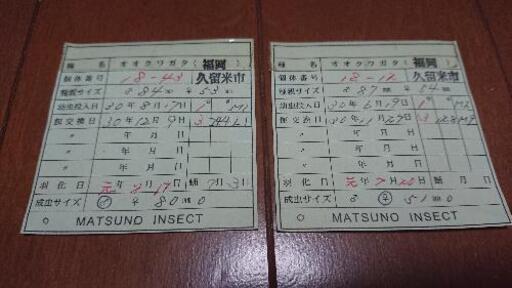 種 名 オオクワガタ(福岡)
個体番号 18-43 久留米市
種親サイズ ♂84 ♀53
幼虫投入日 30年8月17日 1
瓶交換日 30年12月9日 3
〃 年 月 日
〃 年 月 日
〃 年 月 日
羽化日 元年8月17日
成虫サイズ ♂ ♀ 80mm0
MATSUNO INSECT
種 名 オオクワガタ(福岡)
個体番号 18-12 久留米市
種親サイズ ♂87 ♀54
幼虫投入日 30年6月19日 1
瓶交換日 30年11月29日 3
〃 年 月 日
〃 年 月 日
〃 年 月 日
羽化日 元年7月20日 月 日
成虫サイズ ♂ ♀ 51mm0
MATSUNO INSECT